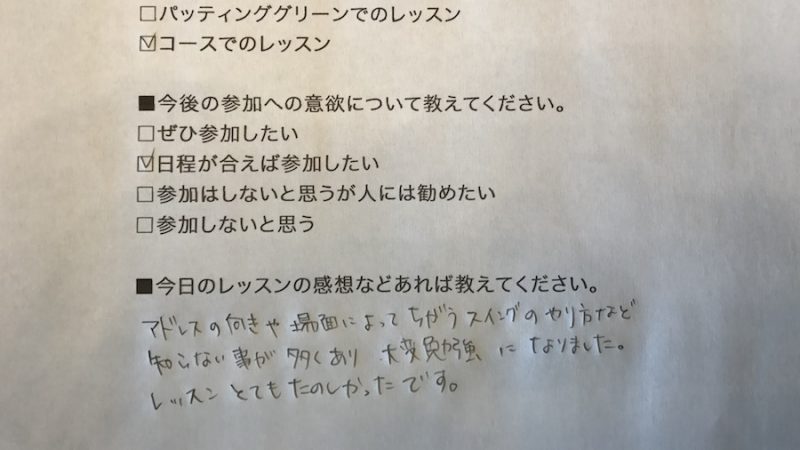 □パッティンググリーンでのレッスン
☑コースでのレッスン
■今後の参加への意欲について教えてください。
□ぜひ参加したい
☑日程が合えば参加したい
□参加はしないと思うが人には勧めたい
□参加しないと思う
■今日のレッスンの感想などあれば教えてください。
アドレスの向きや場面によってちがうスイングのやり方など
知らない事が多くあり 大変勉強になりました。
レッスンとてもたのしかったです。